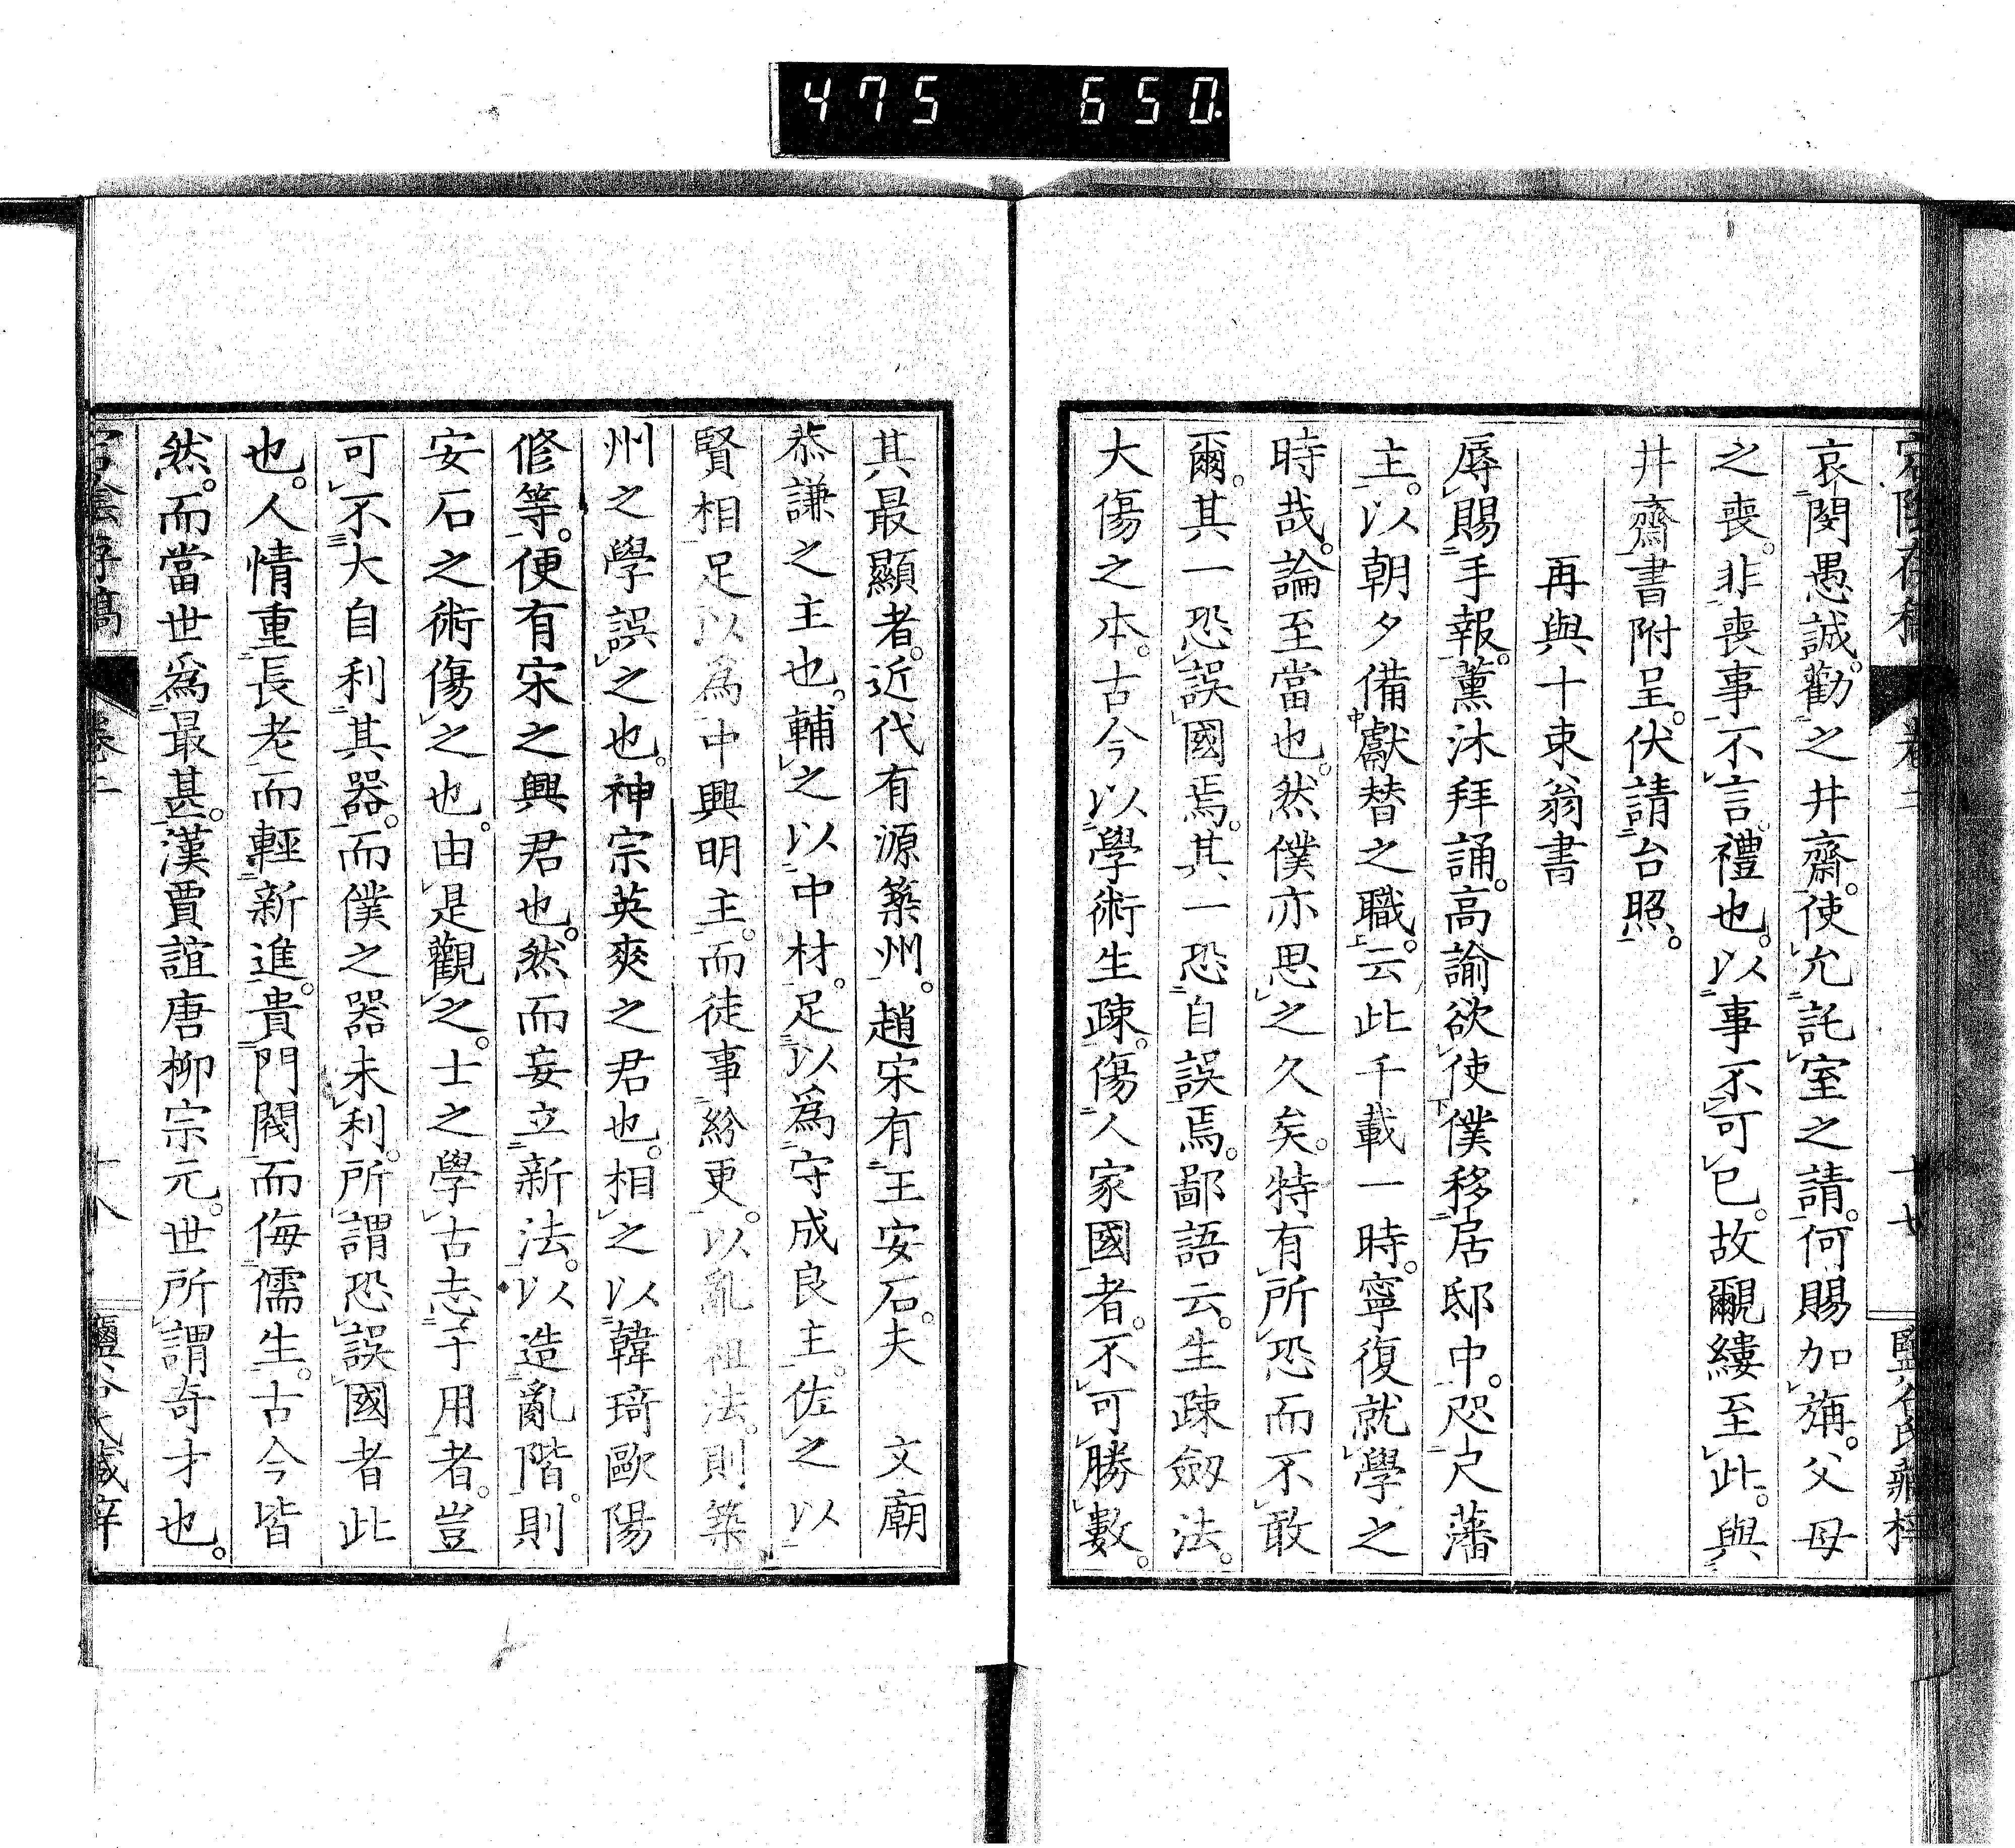 475 650.
哀閔愚誠。勸之井齋。使允託室之請。何賜加旃。父母
之喪。非喪事不言。禮也。以事不可已。故覼縷至此。與
井齋書附呈。伏請台照。
再與十束翁書
辱賜手報。薰沐拜誦。高諭欲使僕移居邸中。咫尺藩
主。以朝夕備獻替之職。云此千載一時。寧復就學之
時哉。論至當也。然僕亦思之久矣。特有所恐而不敢
爾。其一恐誤國焉。其一恐自誤焉。鄙語云。生疎劔法。
大傷之本。古今以學術生疎。傷人家國者。不可勝數。
其最顯者。近代有源築州。趙宋有王安石。夫 文廟
恭謙之主也。輔之以中材。足以為守成良主。佐之以
賢相足以為中興明主。而徒事紛更。以亂祖法。則築
州之學誤之也。神宗英爽之君也。相之以韓琦歐陽
修等。便有宋之興君也。然而妄立新法。以造亂階。則
安石之術傷之也。由是觀之。士之學古志于用者。豈
可不大自利其器。而僕之器未利。所謂恐誤國者此
也。人情重長老而輕新進。貴門閥而侮儒生。古今皆
然。而當世爲最甚。漢賈誼唐柳宗元。世所謂奇才也。
卷二 十八